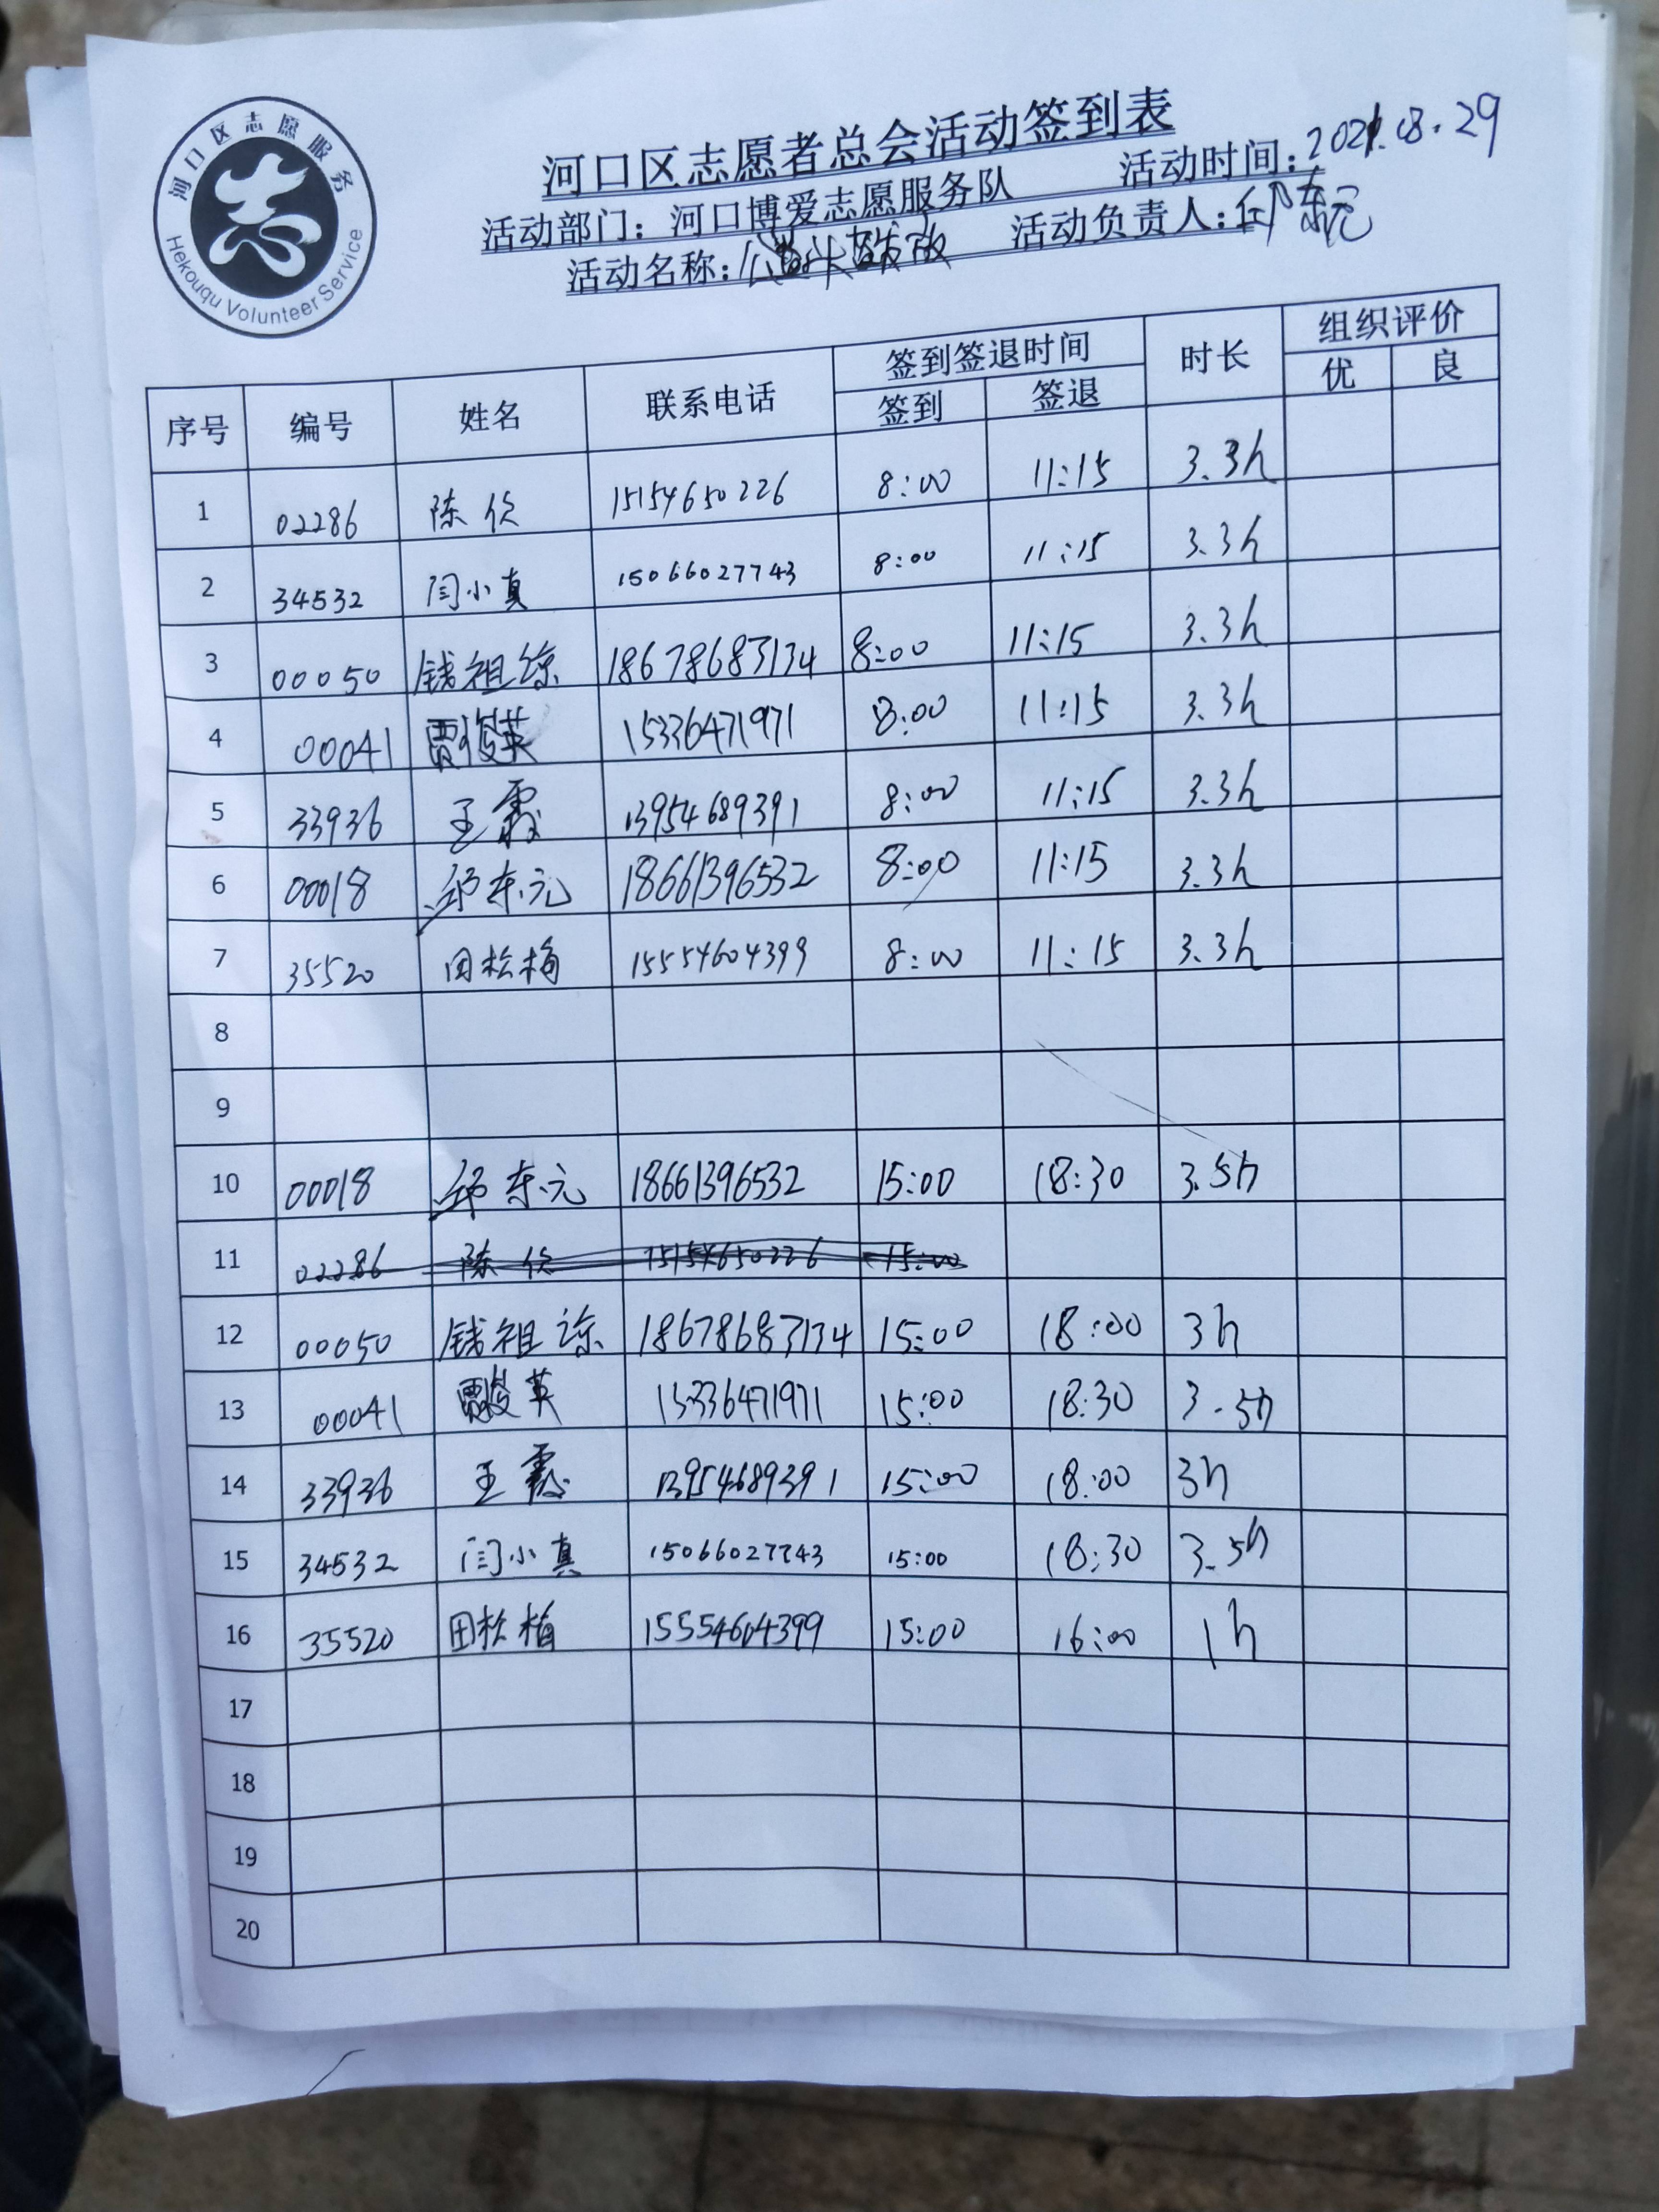 河口区志愿服务
Hekouqu Volunteer Service
河口区志愿者总会活动签到表
活动部门：河口博爱志愿服务队 活动时间：2021.08.29
活动名称： 活动负责人：邱东元
序号 编号 姓名 联系电话 签到签退时间 时长 组织评价
签到 签退 优 良
1 02286 陈 15154650226 8:00 11:15 3.3h
2 34532 闫小真 15066027743 8:00 11:15 3.3h
3 00050 钱祖琼 18678683134 8:00 11:15 3.3h
4 00041 贾俊英 15336471971 8:00 11:15 3.3h
5 33936 王霞 13954689391 8:00 11:15 3.3h
6 00018 邱东元 18661396532 8:00 11:15 3.3h
7 35520 田松梅 15554604399 8:00 11:15 3.3h
8
9
10 00018 邱东元 18661396532 15:00 18:30 3.5h
11 02286 陈 15154650226 15:00
12 00050 钱祖琼 18678683134 15:00 18:00 3h
13 00041 贾俊英 15336471971 15:00 18:30 3.5h
14 33936 王霞 13954689391 15:00 18:00 3h
15 34532 闫小真 15066027743 15:00 18:30 3.5h
16 35520 田松梅 15554604399 15:00 16:00 1h
17
18
19
20